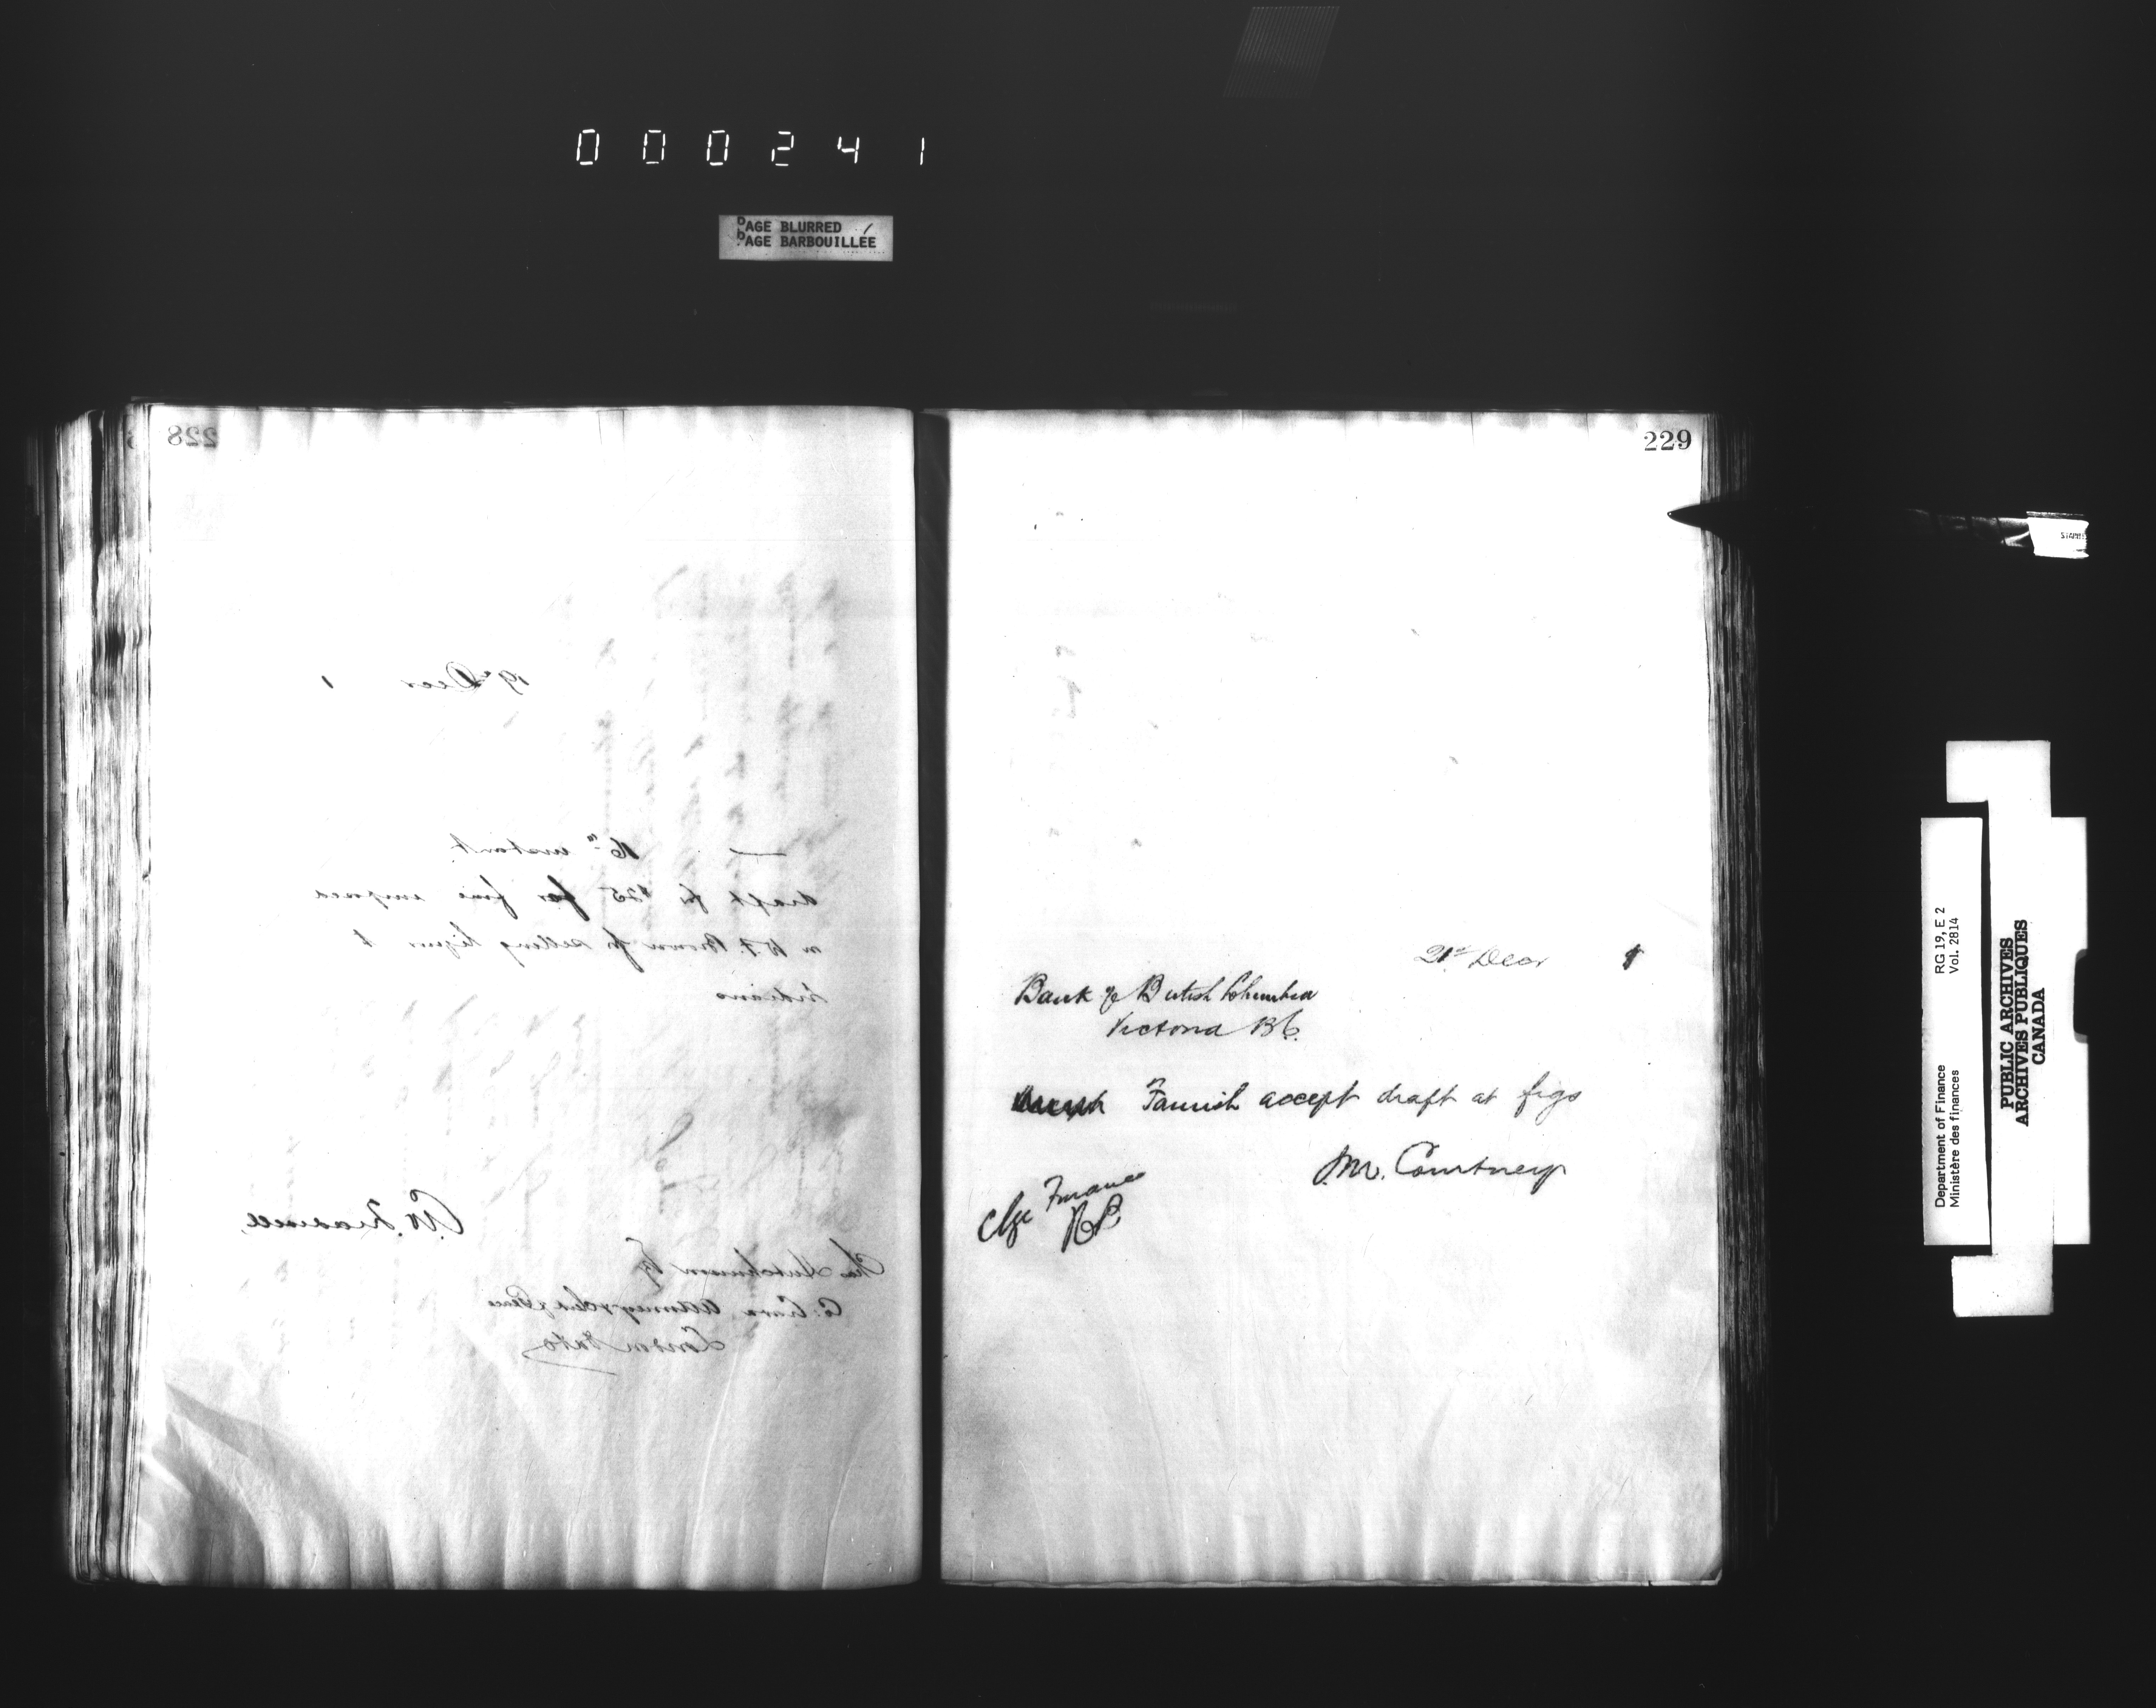 000241
PAGE BLURRED
PAGE BARBOUILLÉE
228
19th Decr 1
16th instant
draft for $25 for fine imposed
on W F. Brown for selling liquor to
Indians
Chas Hutchinson Esq
Co: Crown Attorney & Clerk of Peace
London Ont
229
21st Decr 1
Bank of British Columbia
Victoria BC.
accept draft at figs
J.M. Courtney
Chge Finance
STAINLES
Department of Finance
Ministère des finances
RG 19, E 2
Vol. 2814
PUBLIC ARCHIVES
ARCHIVES PUBLIQUES
CANADA